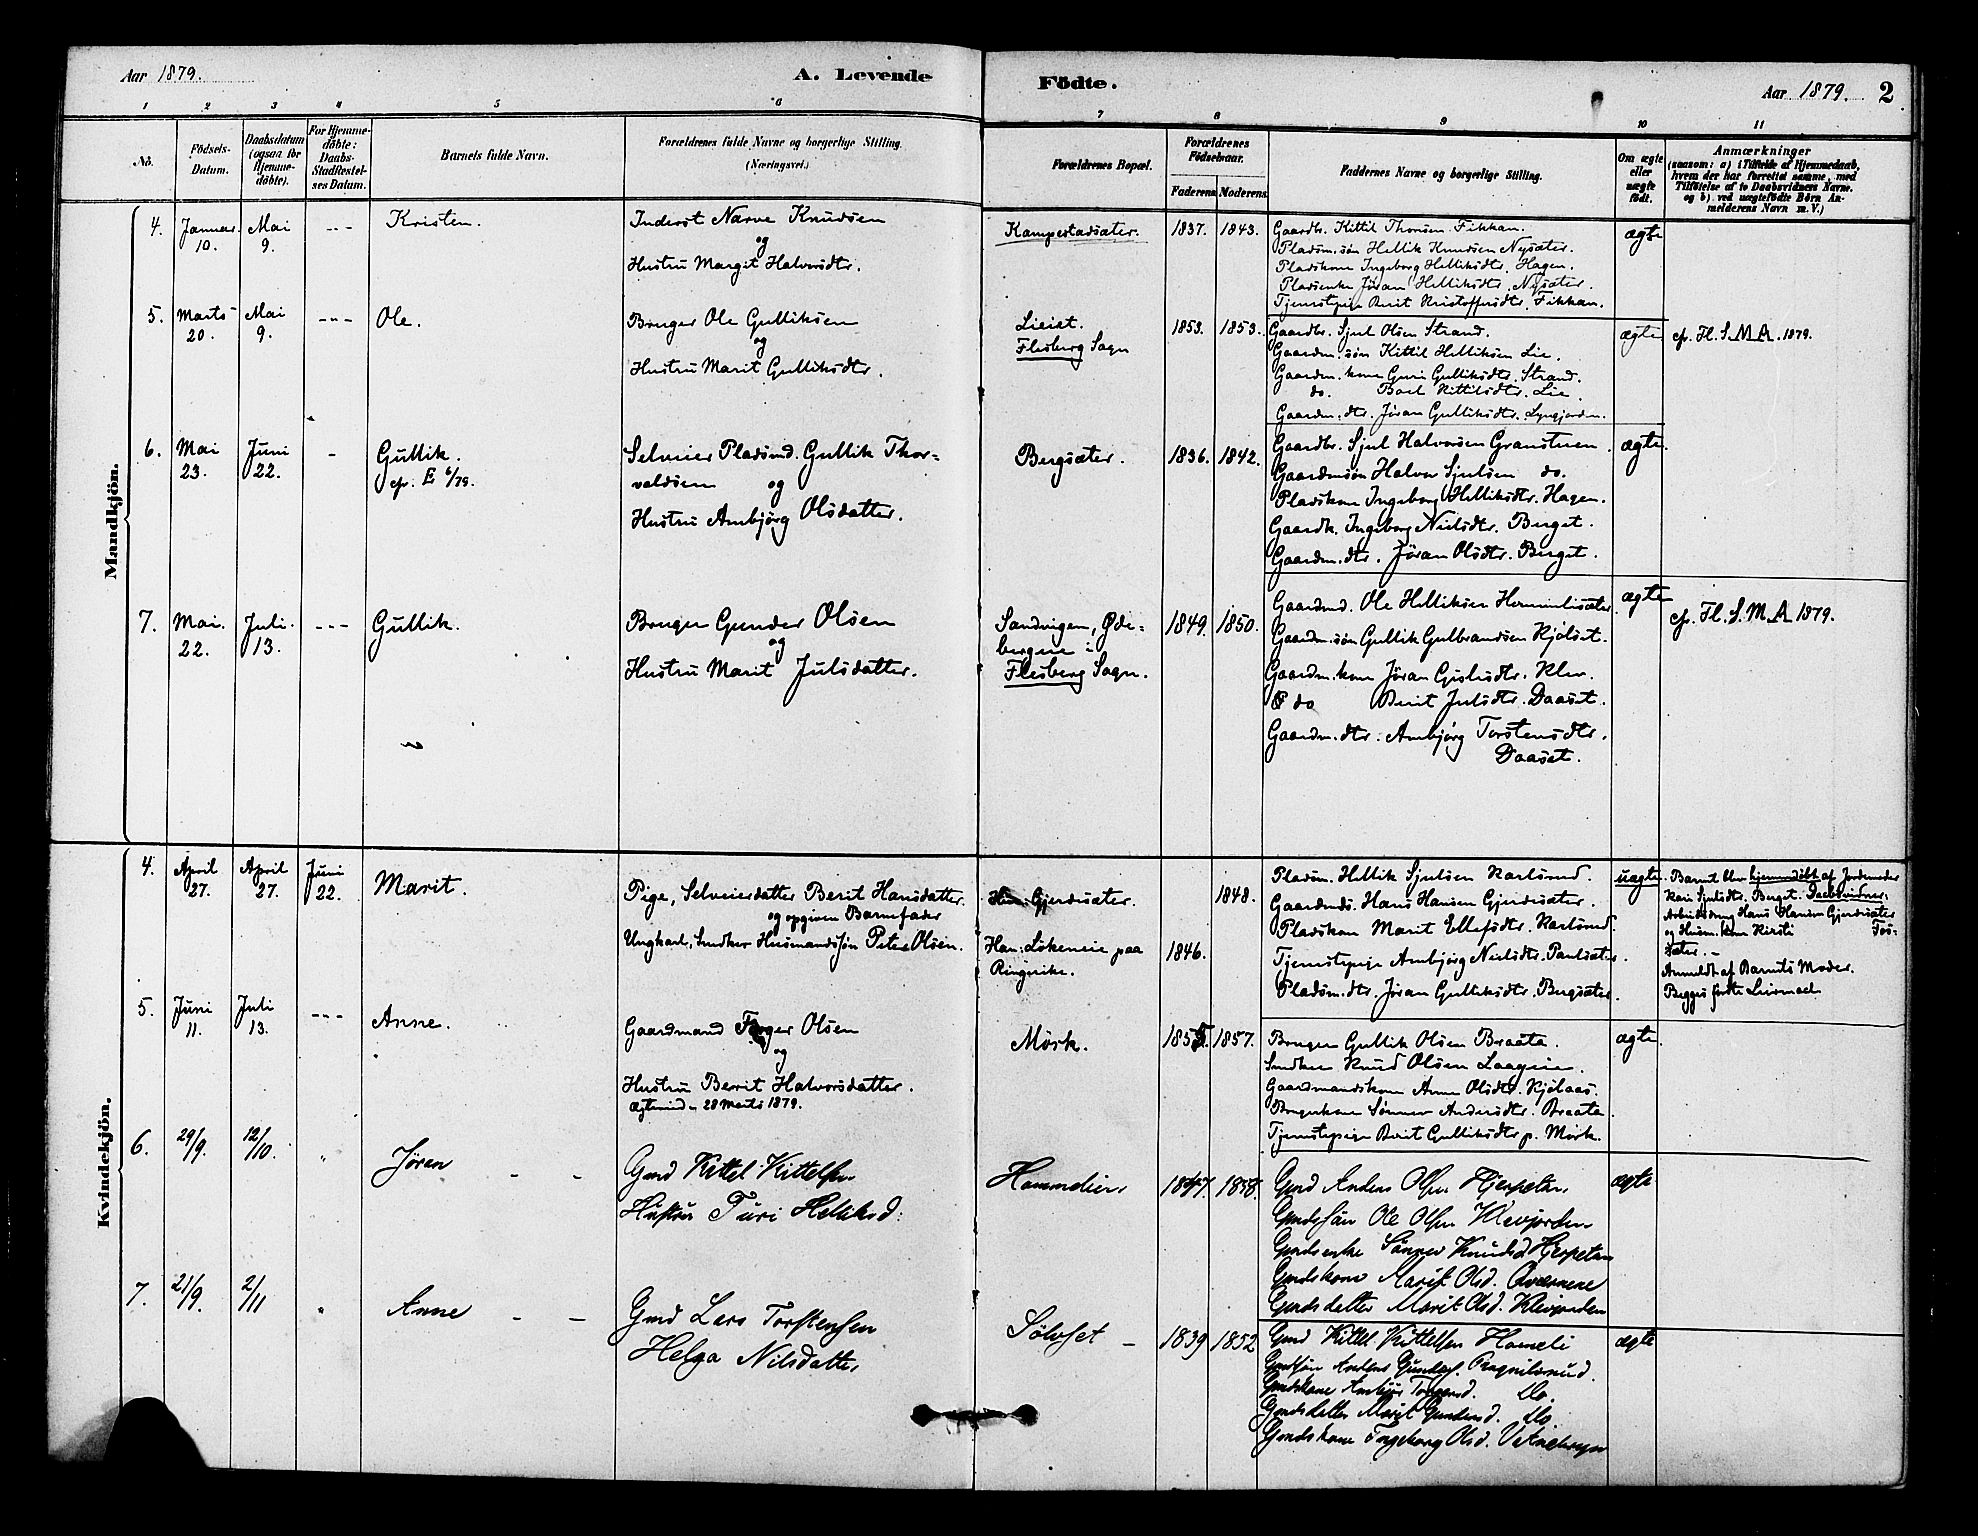 Aar 1879.
A. Levende
Födte.
Aar 1879. 2
1 2 3 4 5 6 7 8 9 10 11
No.
Födsels-
Datum.
Daabsdatum
(ogsaa for
Hjemme-
döbte).
For Hjemme-
döbte:
Daabs-
Stadfæstel-
ses Datum.
Barnets fulde Navn.
Forældrenes fulde Navne og borgerlige Stilling.
(Næringsvei.)
Forældrenes Bopæl.
Forældrenes
Födselsaar.
Faderens. Moderens.
Faddernes Navne og borgerlige Stilling.
Om ægte
eller
uægte
födt.
Anmærkninger
(saasom: a) i Tilfælde af Hjemmedaab,
hvem der har forrettet samme, med
Tilföielse af to Daabsvidners Navne.
og b) ved uægtefödte Börn An-
melderens Navn m. V.)
Mandkjön.
4. Januar
10.
Mai
9.
---
Kristen.
Inderst Narve Knudsen
og
Hustru Margit Halvorsdtr.
Kampestadsæter.
1837. 1843.
Gaardbr. Kittil Thorsen Fikkan.
Pladsm.søn Hellik Knudsen Nysæter.
Pladskone Ingeborg Helliksdtr. Hagen.
Pladsenke Jøran Helliksdtr. Nysæter.
Tjenestepige Berit Kristoffersdtr. Fikkan.
ægte
5. Marts
20.
Mai
9.
---
Ole.
Bruger Ole Gulliksen
og
Hustru Marit Gulliksdtr.
Lieiet.
Flesberg Sogn
1853. 1853.
Gaardbr. Sjul Olsen Strand.
Gaardm.søn Kittil Helliksen Lie.
Gaardm.kone Guri Gulliksdtr. Strand.
do. Boel Kittilsdtr. Lie.
Gaardm.dtr. Jøran Gulliksdtr. Lyngjorden.
ægte
cfr. Fl. S. M.A. 1879.
6. Mai
23.
Juni
22.
-
Gullik.
cfr. E 6/79.
Selveier Pladsmd. Gullik Thor-
valdsen og
Hustru Ambjørg Olsdatter.
Bergsæter.
1836. 1842.
Gaardbr. Sjul Halvorsen Granstuen.
Gaardmsøn Halvor Sjulsen do.
Pladskone Ingeborg Helliksdtr. Hagen.
Gaardk. Ingeborg Nielsdtr. Berget.
Gaardm.dtr. Jøran Olsdtr. Berget.
ægte.
7. Mai.
22.
Juli.
13.
---
Gullik.
Bruger Gunder Olsen
og
Hustru Marit Julsdatter.
Sandvigen, Øde-
bergene i
Flesberg Sogn.
1849. 1850.
Gaardmd. Ole Helliksen
Gaardm.søn Gullik Gulbrandsen
Gaardm.kone Jøran
do Berit Julsdtr. Daaset.
Gaardm.dtr. Ambjørg Torstensdtr.
Daaset.
ægte
cfr. Fl. S. M A 1879.
Kvindekjön.
4. April
27.
April
27.
Juni
22.
Marit.
Pige, Selveierdatter Berit Hansdatter.
og opgiven Barnefader
Ungkarl, Snedker Husmandssøn Peter Olsen.
Hun: Gjerdesæter.
Han: Løkeneie paa
Ringerike.
1848.
1846.
Pladsm. Hellik Sjulsen Karlsrud.
Gaardmds. Hans Hansen Gjerdesæter.
Pladskon Marit Ellefsdtr. Karlsrud.
Tjenestepige Ambjørg Nielsdtr. Paulsæter.
Pladsm.dtr. Jøran Gulliksdtr. Bergsæter.
uægte.
Barnet blev hjemmedøbt af Jordemoder
Kari Sjulsdtr. Berget. Daabsvidner:
Arbeidsdreng Hans Hansen Gjerdesæter
og Husm.kone Kirsti Tos-
sæter. -
Anmeldt af Barnets Moder.
Begges første Leiermaal
5. Juni
11.
Juli
13.
---
Anne.
Gaardmand Olsen
og
Hustru Berit Halvorsdatter.
Ægteviede 28 Marts 1879.
Mørk.
1855. 1857.
Bruger Gullik Olsen Braata.
Snedker Knud Olsen
Gaardmandskone Anne Olsdtr. Kjølaas.
Brugerkone Sønnev Andersdtr. Braata.
Tjenestepige Berit Gulliksdtr. p. Mørk.
ægte.
6. 29/9. 12/10. "
Jøren - -
Gmd Kittel Kittelsen
Hustru Turi Helliksd.
Hammelien
1847. 1858.
Gmd Anders Olsen Hjerpetan
Gmdssøn Ole Olsen Klevjorden
Gmdsenke Sønnev Knudsd Hjerpetan
Gmdskone Marit Olsd. Qværnene
Gmdsdatter Marit Olsd. Klevjorden
ægte
7. 21/9. 2/11 "
Anne - -
Gmd Lars Torstensen
Helga Nilsdatter
Sølvset -
1839 1852
Gmd Kittel Kittelsen Hameli
Gmdssøn Anders Gunders.
Gmdskone Do.
Gmdsdatter Marit Gundersd. do.
Gmdskone Ingeborg Olsd.
ægte